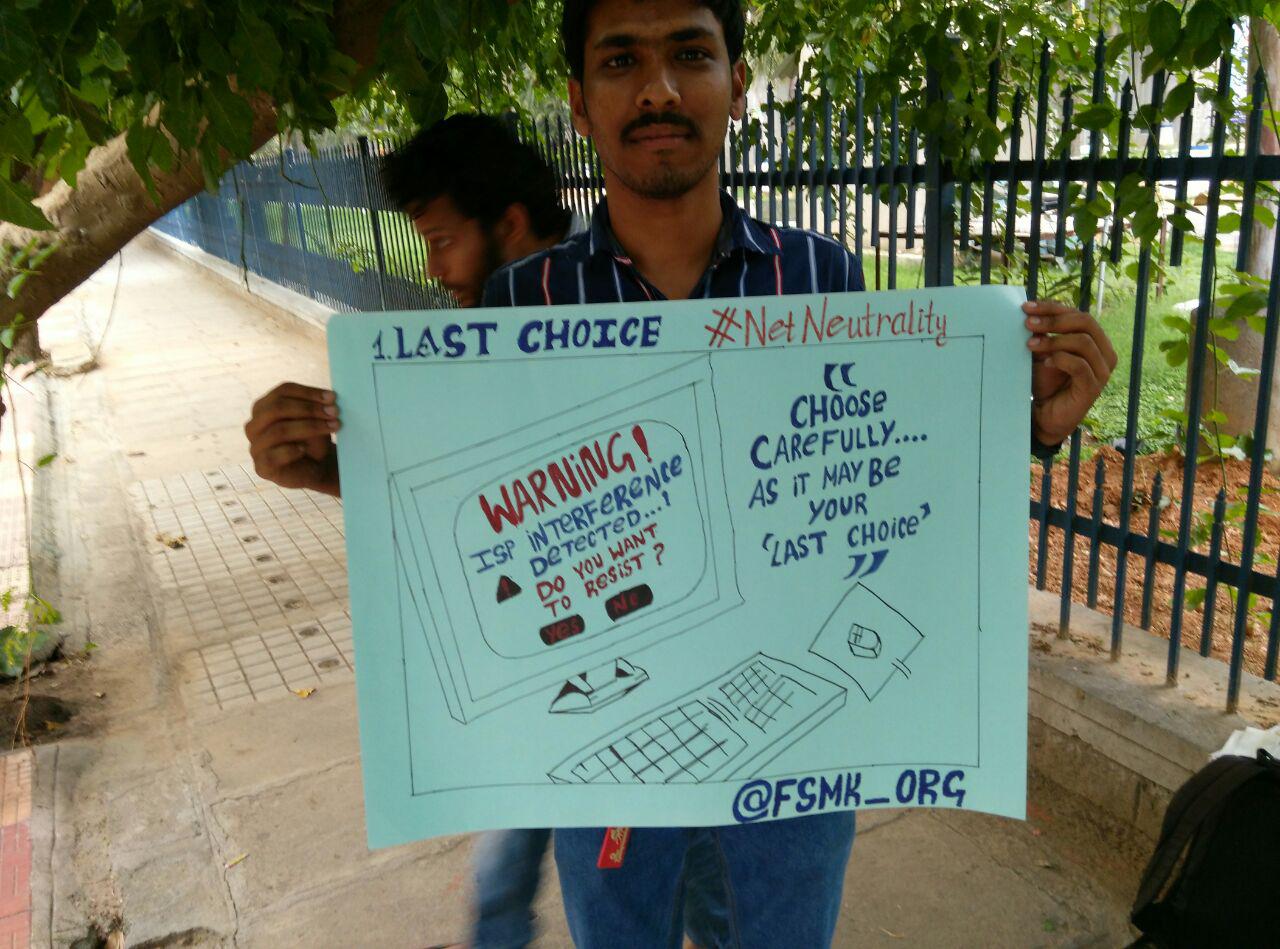 1. LAST CHOICE
#Net Neutrality
WARNING!
ISP INTERFERENCE
DETECTED...!
DO YOU WANT
TO RESIST?
Yes
No
“
CHOOSE
CAREFULLY....
AS IT MAY BE
YOUR
‘LAST CHOICE’
”
@FSMK_ORG